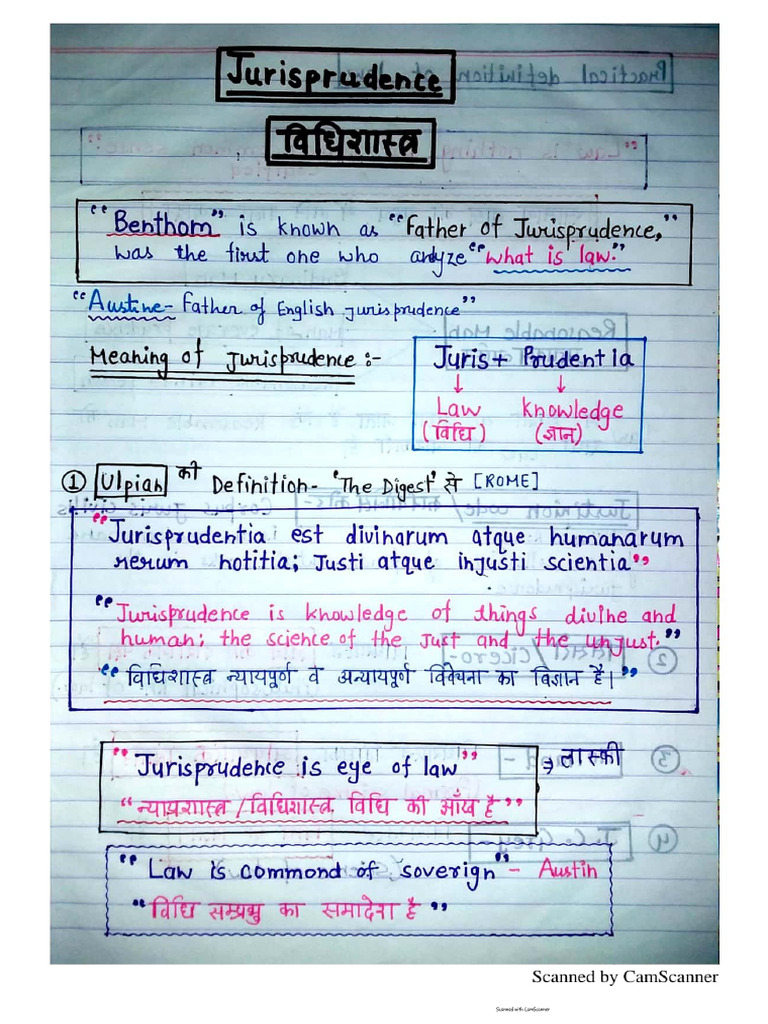 Jurisprudence
विधिशास्त्र
"Benthom" is known as "Father of Jurisprudence,"
was the first one who analyze "what is law."
"Austine- Father of English Jurisprudence"
Meaning of Jurisprudence :-
Juris + Prudentia
↓ ↓
Law Knowledge
(विधि) (ज्ञान)
① Ulpian की Definition- 'The Digest' से [ROME]
"Jurisprudentia est divinarum atque humanarum
rerum notitia; Justi atque injusti scientia"
"Jurisprudence is knowledge of things divine and
human; the science of the Just and the unjust."
"विधिशास्त्र न्यायपूर्ण वे अन्यायपूर्ण विवेचना का विज्ञान है।"
"Jurisprudence is eye of law" → लास्की
"न्यायशास्त्र / विधिशास्त्र विधि की आँख है"
"Law is commond of soverign" - Austin
"विधि सम्प्रभु का समादेश है"
Scanned by CamScanner
Scanned with CamScanner